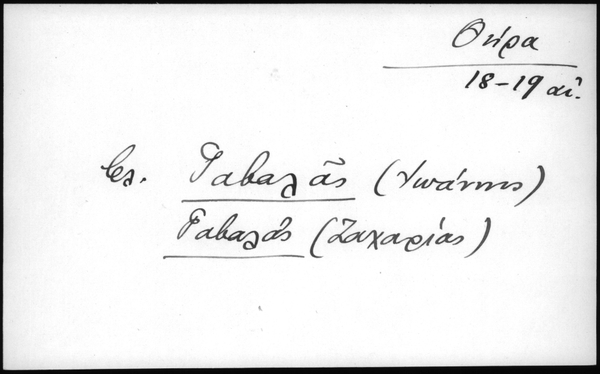 Θήρα
18-19 αἰ.
βλ. Γαβαλᾶς (Ἰωάννης)
Γαβαλᾶς (Ζαχαρίας)